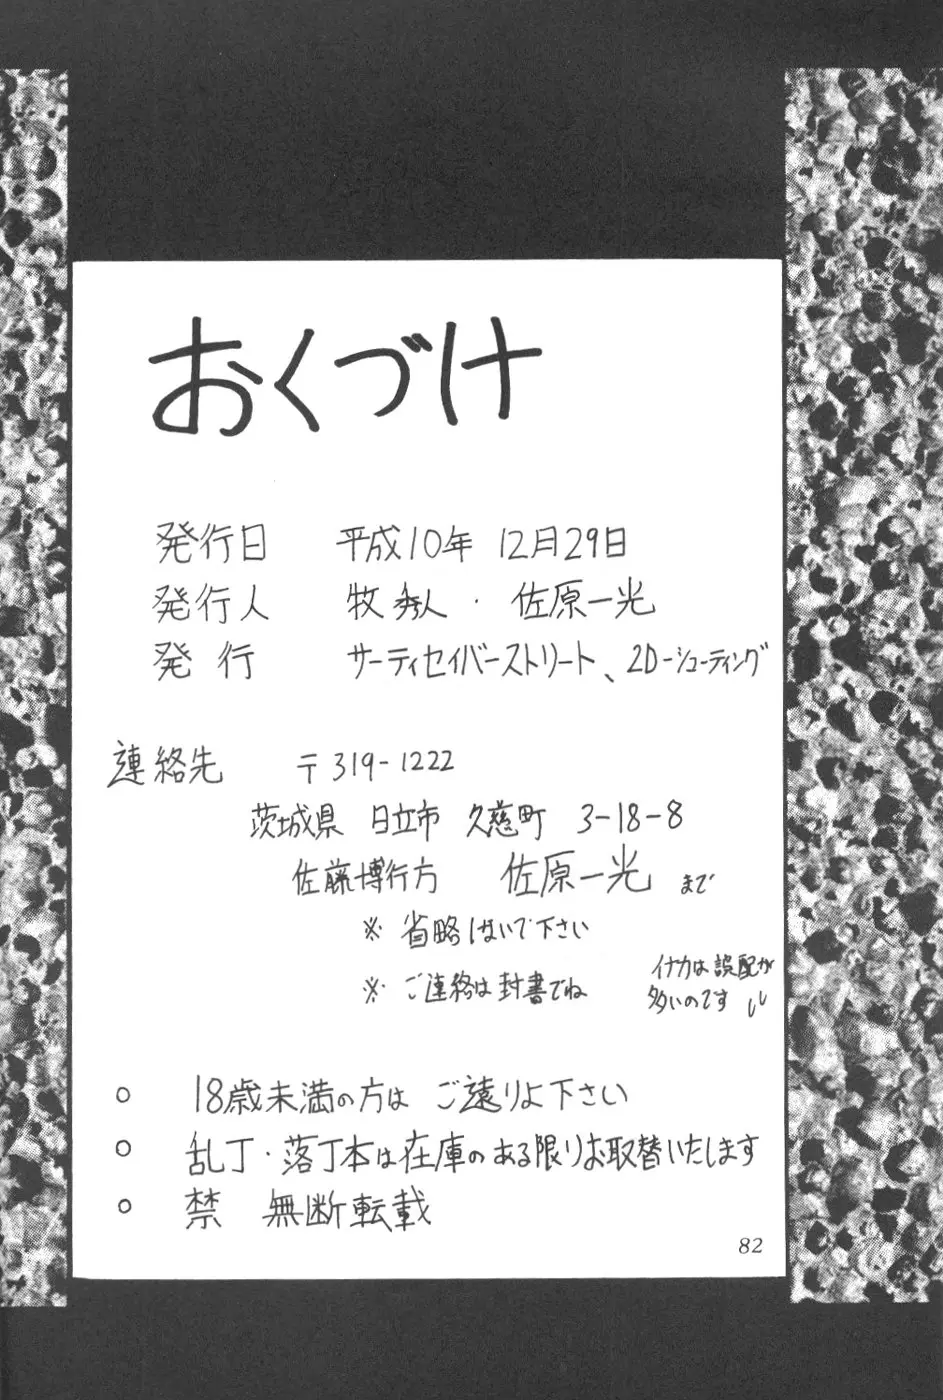 おくづけ
発行日 平成10年 12月29日
発行人 牧 秀人・佐原一光
発行 サーティセイバーストリート、2D-シューティング
連絡先 〒319-1222
茨城県 日立市 久慈町 3-18-8
佐藤博行方 佐原一光 まで
※ 省略しないで下さい
※ ご連絡は封書でね
イナカは誤配が
多いのです
○ 18歳未満の方は ご遠りよ下さい
○ 乱丁・落丁本は在庫のある限りお取替いたします
○ 禁 無断転載
82